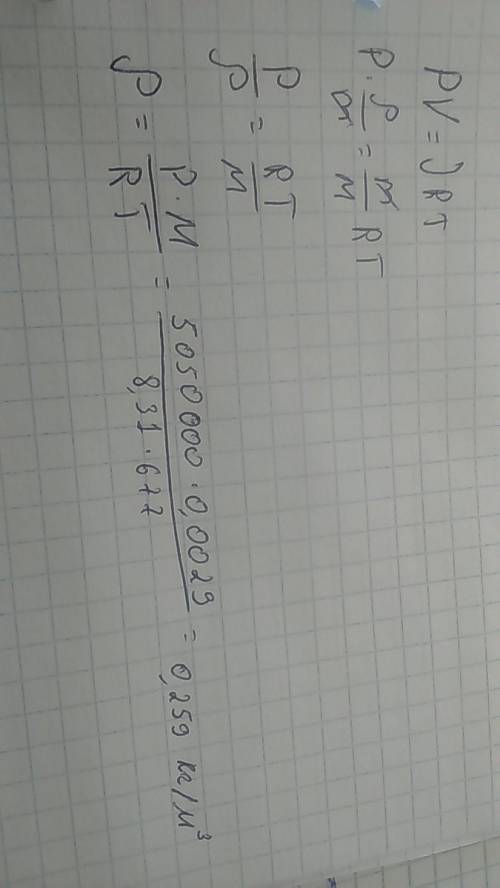 PV = νRT
P · ρ/m = m/M RT
P/ρ = RT/M
ρ = P·M/RT = 5050000·0,0029/8,31·677 = 0,259 кг/м³